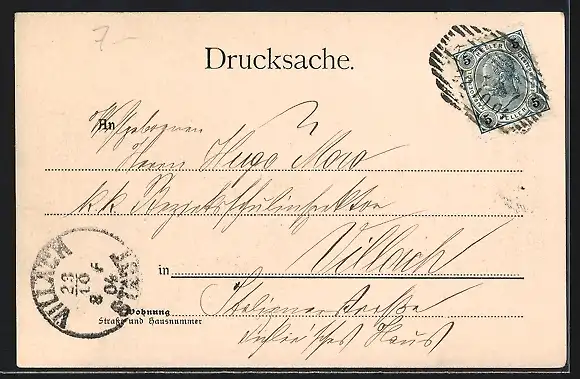 7-
Drucksache.
5 5
5 5
An Wohlgeboren
Herrn Hugo Moro
k k Bezirksschulinspektor
in Villach
Wohnung
Straße und Hausnummer
Italienerstraße
'sches Haus
VILLACH
23
10
8 F
04
STADT